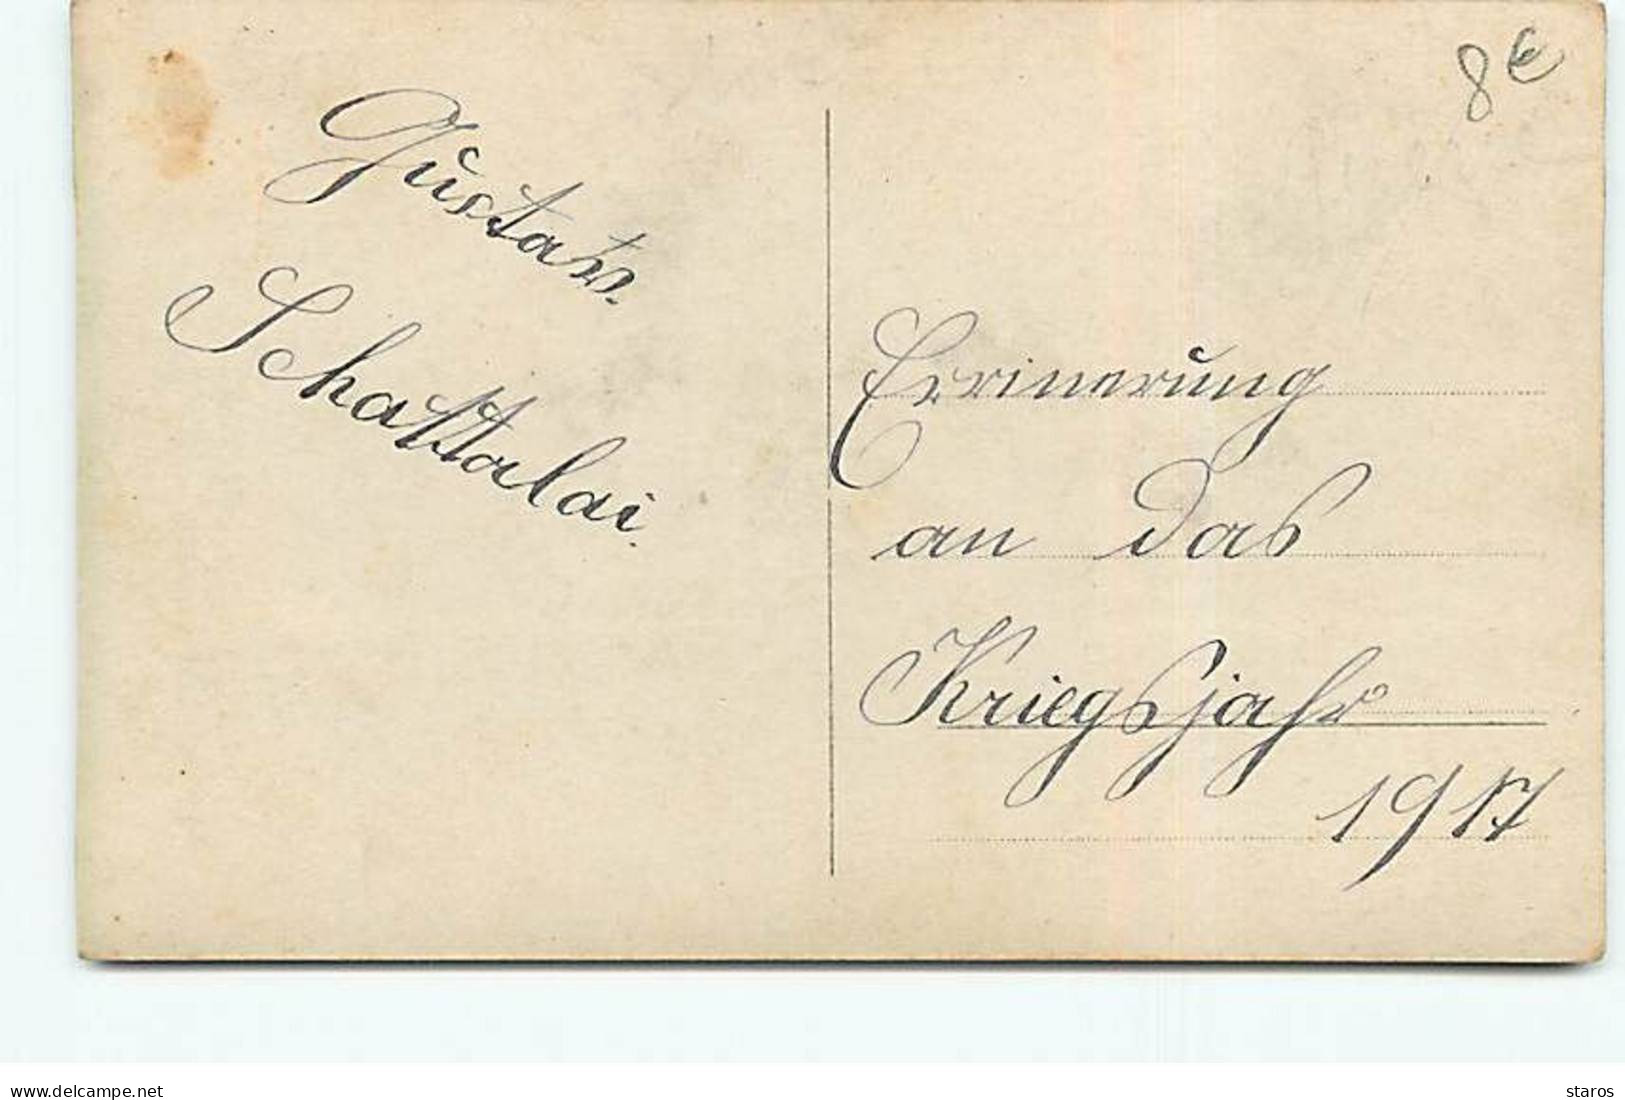 8€
Gustav.
Schattalai.
Errinerung
an das
Kriegsjahr
1917
www.delcampe.net
staros